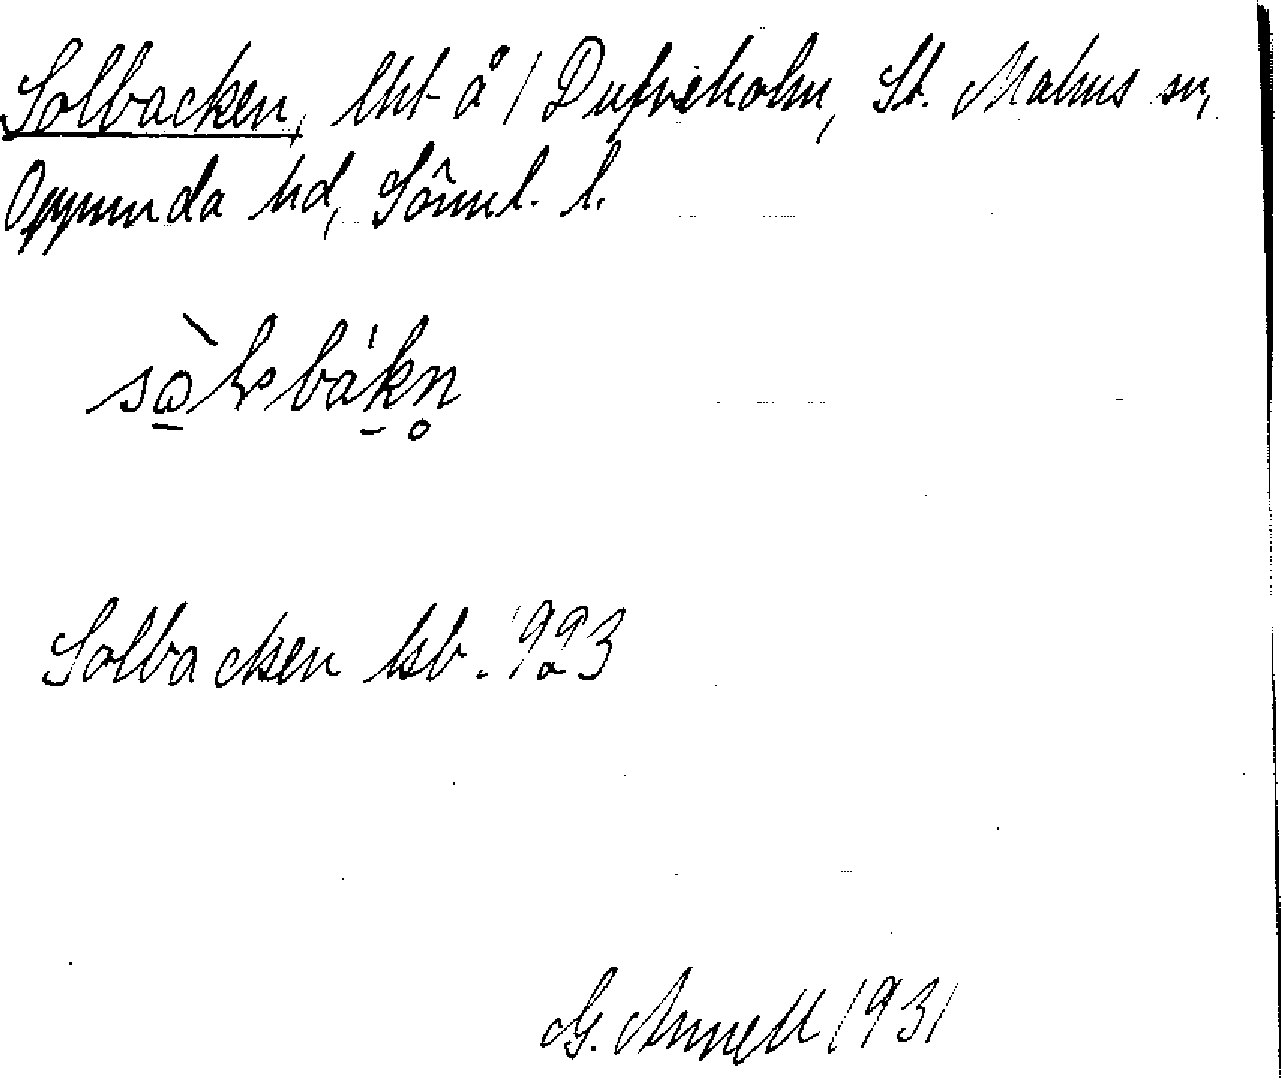 Solbacken, lht å 1 Dufveholm, St. Malms sn,
Oppunda hd, Söml. l.
Solbacken ksb. 1923
G. Annell 1931